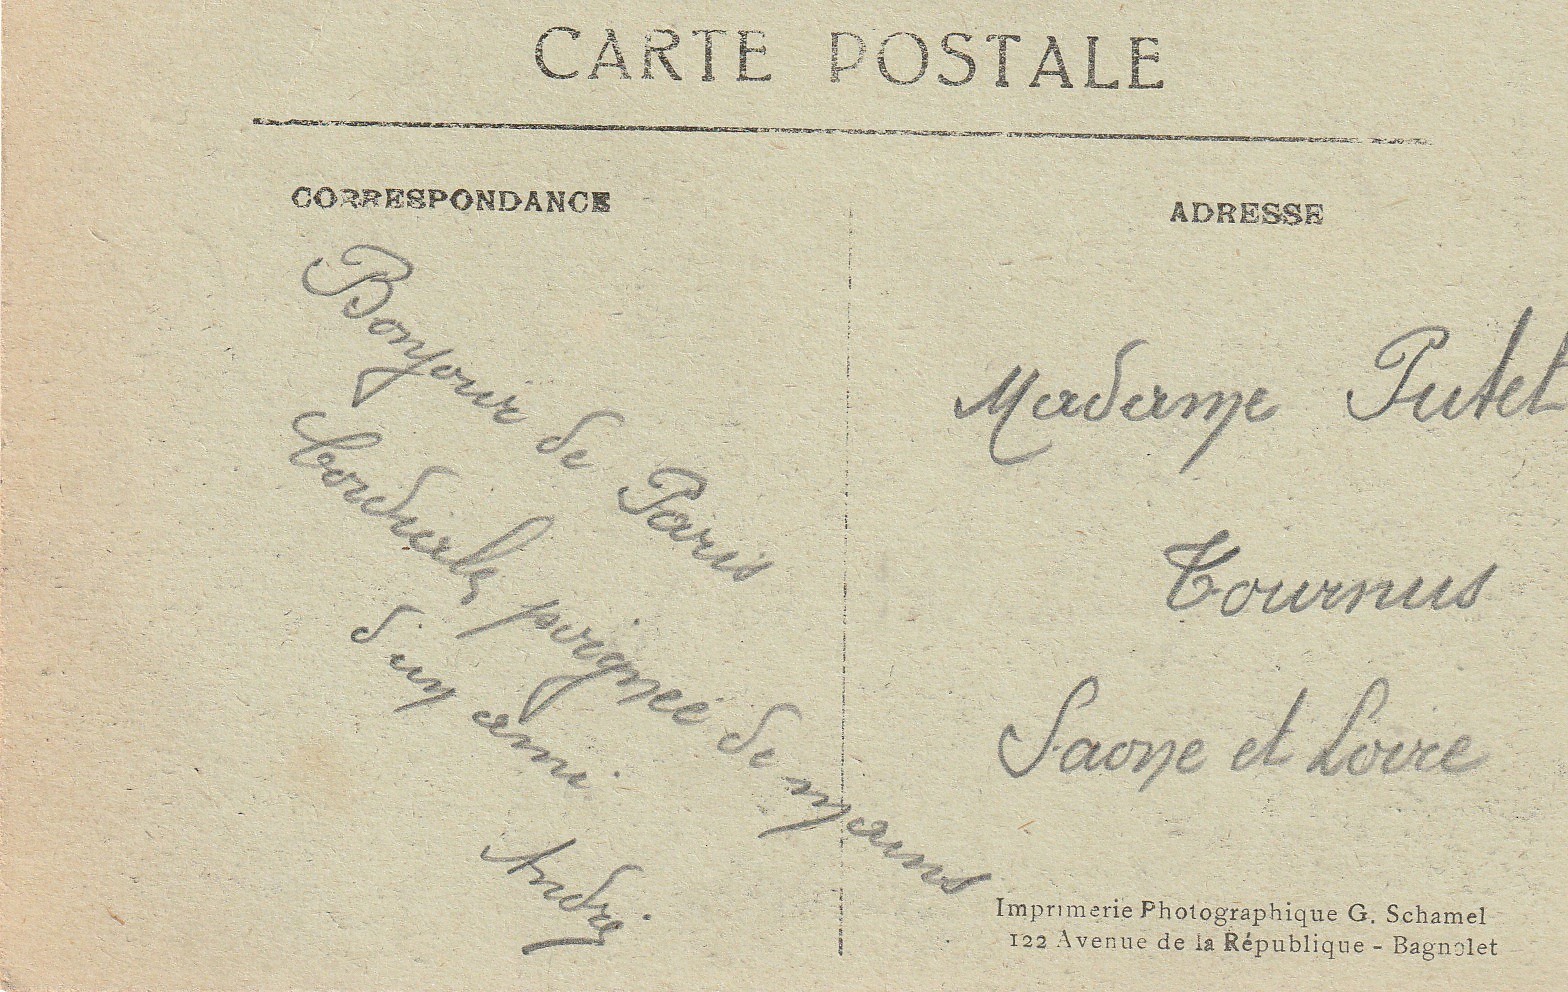 CARTE POSTALE
CORRESPONDANCE
Bonjour de Paris
Cordiale poignée de mains
d'un ami.
André
ADRESSE
Madame Putet
Tournus
Saone et Loire
Imprimerie Photographique G. Schamel
122 Avenue de la République - Bagnolet